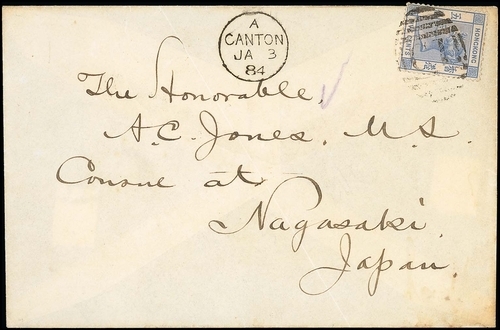 A
CANTON
JA 3
84
HONG KONG
The Honorable,
A. C. Jones. U. S.
Consul at
Nagasaki
Japan.